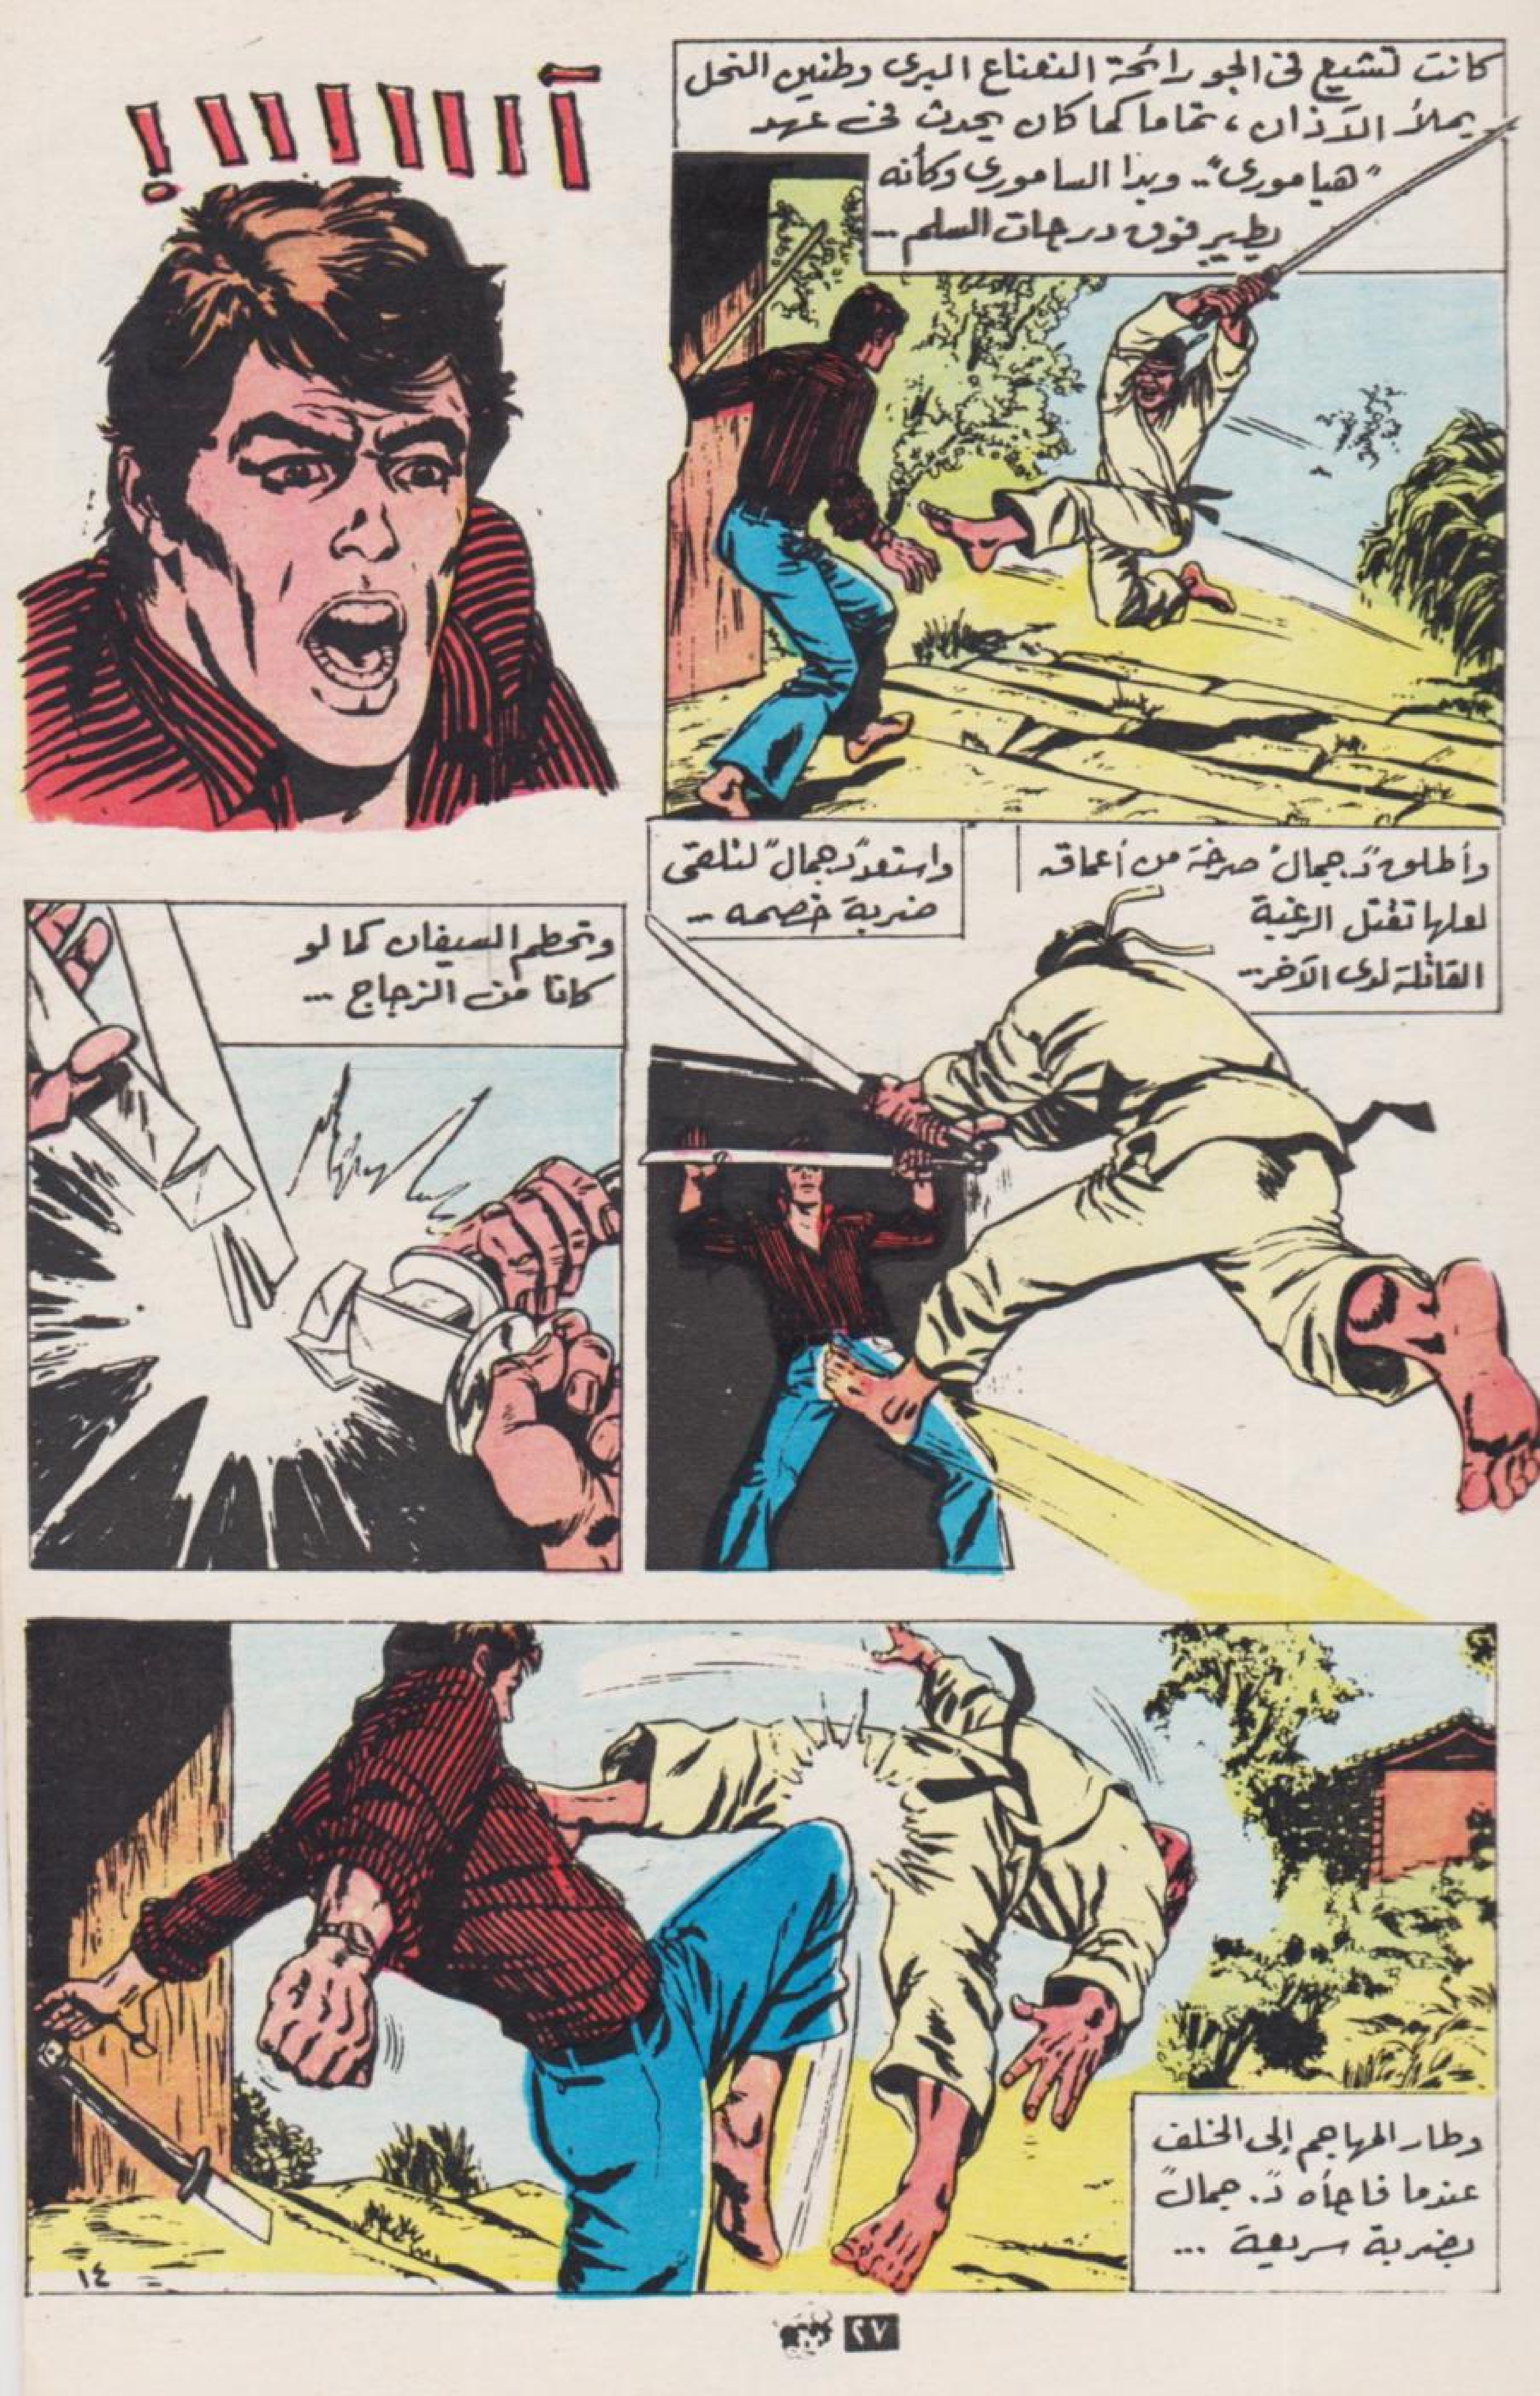 كانت تشيع في الجو رائحة النعناع البرى وطنين النحل
يملأ الآذان، تماما كما كان يحدث في عهد
"هياموری".. وبدا الساموری وكأنه
يطير فوق درجات السلم ...
آااااااا!
وأطلق "د. جمال" صرخة من أعماقه
لعلها تقتل الرغبة
القاتلة لدى الآخر...
واستعد "د. جمال" لتلقى
ضربة خصمه ...
وتحطم السيفان كما لو
كانا من الزجاج ...
وطار المهاجم إلى الخلف
عندما فاجأه "د. جمال"
بضربة سريعة ...
١٤
٢٧